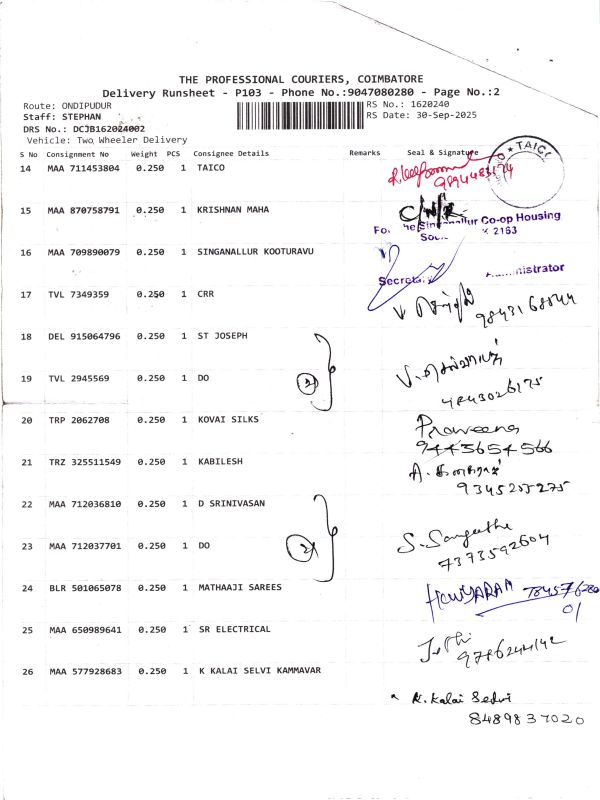 THE PROFESSIONAL COURIERS, COIMBATORE
Delivery Runsheet - P103 - Phone No.:9047080280 - Page No.:2
Route: ONDIPUDUR RS No.: 1620240
Staff: STEPHAN RS Date: 30-Sep-2025
DRS No.: DCJB162024002
Vehicle: Two Wheeler Delivery
S No Consignment No Weight PCS Consignee Details Remarks Seal & Signature
14 MAA 711453804 0.250 1 TAICO
TAICO
9894483174
15 MAA 870758791 1 KRISHNAN MAHA
0.250
C/N/R
For the Singanallur Co-op Housing
K 2163
16 MAA 709890079 0.250 1 SINGANALLUR KOOTURAVU
Secretary Administrator
17 TVL 7349359 0.250 1 CRR
V
18 DEL 915064796 0.250 1 ST JOSEPH
19 TVL 2945569 0.250 1 DO 2
V.
20 TRP 2062708 0.250 1 KOVAI SILKS
Praveena
9443654566
21 TRZ 325511549 0.250 1 KABILESH
A.
9345255275
22 MAA 712036810 0.250 1 D SRINIVASAN
23 MAA 712037701 0.250 1 DO 2
S. Sangeetha
7373592604
24 BLR 501065078 0.250 1 MATHAAJI SAREES
25 MAA 650989641 0.250 1 SR ELECTRICAL
Jothi
26 MAA 577928683 0.250 1 K KALAI SELVI KAMMAVAR
K. Kalai Selvi
8489837020